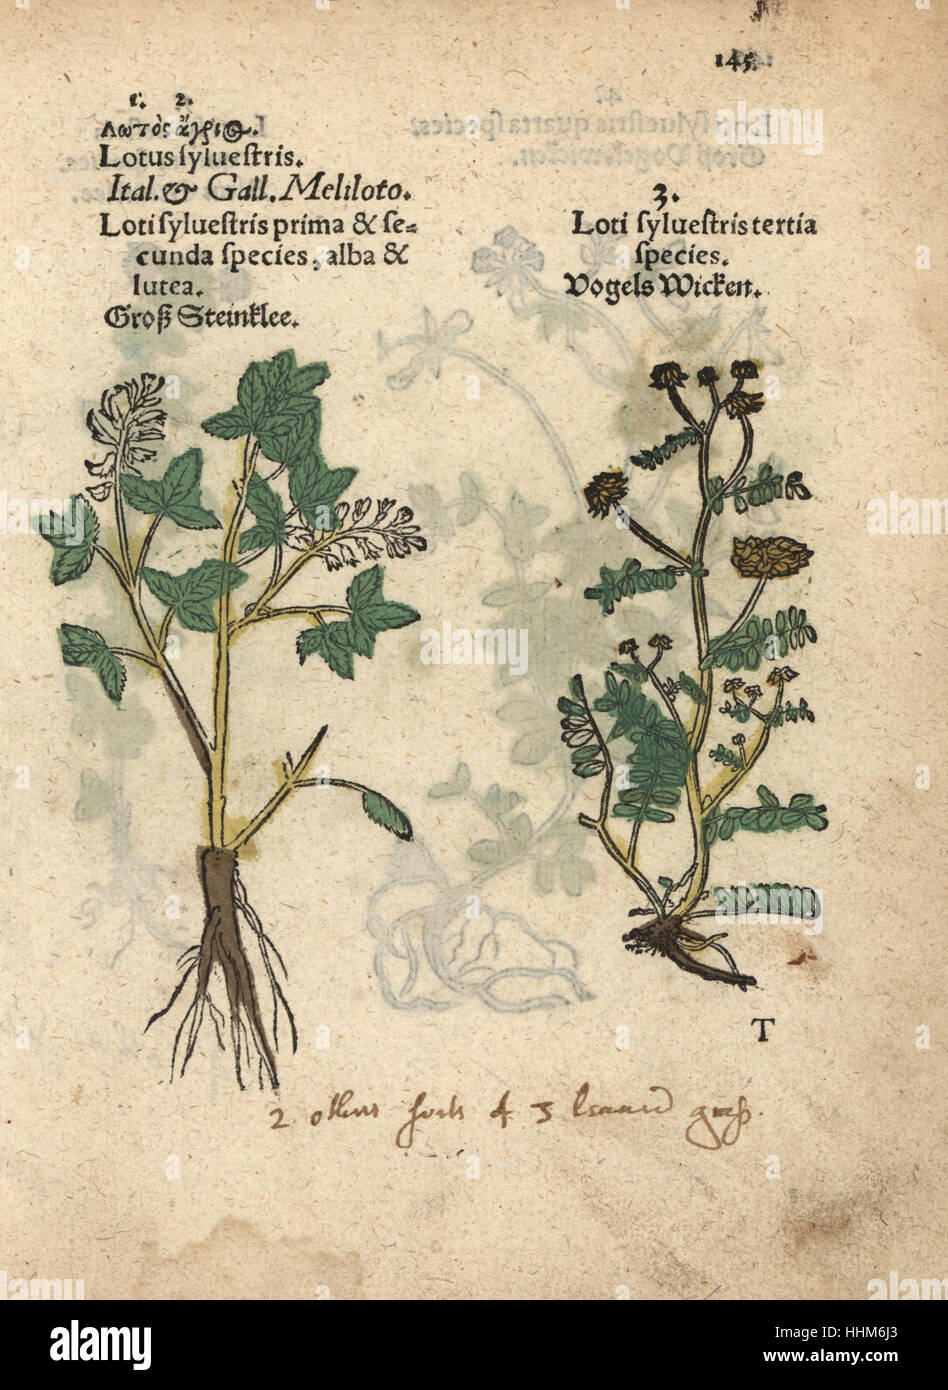 145.
1. 2.
Λωτὸς ἄγριος.
Lotus ſylueſtris.
Ital. & Gall. Meliloto.
Loti ſylueſtris prima & ſe=
cunda ſpecies, alba &
lutea.
Groß Steinklee.
3.
Loti ſylueſtris tertia
ſpecies.
Vogels Wicken.
T
2 others sorts of 3 leaued grass.
alamy
Image ID: HHM6J3
www.alamy.com